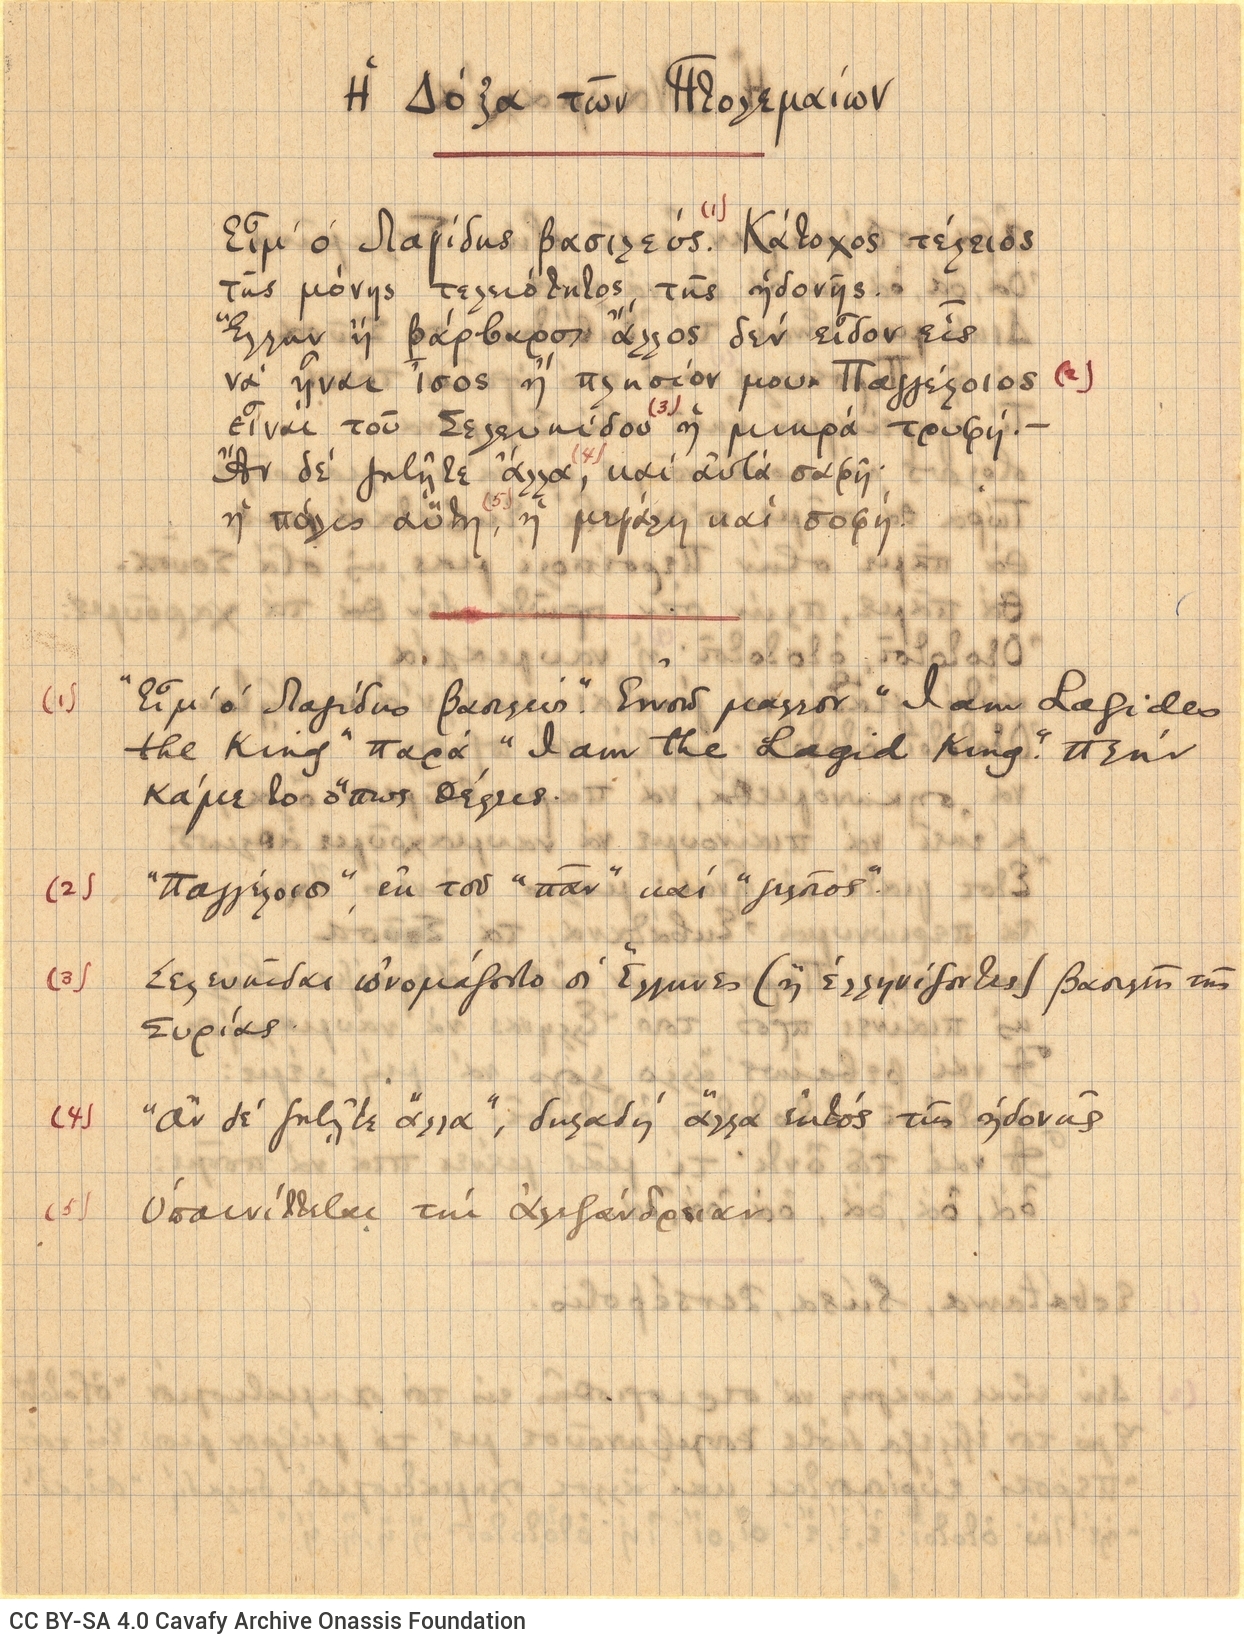 Ἡ Δόξα τῶν Πτολεμαίων
Εἶμ' ὁ Λαγίδης βασιλεύς.(1) Κάτοχος τέλειος
τῆς μόνης τελειότητος, τῆς ἡδονῆς.
Ἕλλην ἢ βάρβαρος ἄλλος δὲν εἶδον εἷς
νὰ ἦναι ἴσος ἢ πλησίον μου. Παγγέλοιος (2)
εἶναι τοῦ Σελευκίδου (3) ἡ μικρὰ τρυφή.—
Ἂν δὲ ζητῆτε ἄλλα (4), καὶ αὐτὰ σαφῆ·
ἡ πόλις αὕτη (5), ἡ μεγάλη καὶ σοφή.
(1) "Εἶμ' ὁ Λαγίδης βασιλεύς". Ἐννοῶ μᾶλλον "I am Lagides
the King" παρὰ "I am the Lagid King". Πλὴν
κάμε το ὅπως θέλεις.
(2) "Παγγέλοιος", ἐκ τοῦ "πᾶν" καὶ "γελοῖος".
(3) Σελευκίδαι ὠνομάζοντο οἱ Ἕλληνες (ἢ ἑλληνίζοντες) βασιλεῖς τῆς
Συρίας.
(4) "Ἂν δὲ ζητῆτε ἄλλα", δηλαδὴ ἄλλα ἐκτὸς τῆς ἡδονῆς
(5) Ὑπαινίττεται τὴν Ἀλεξάνδρειαν.
CC BY-SA 4.0 Cavafy Archive Onassis Foundation